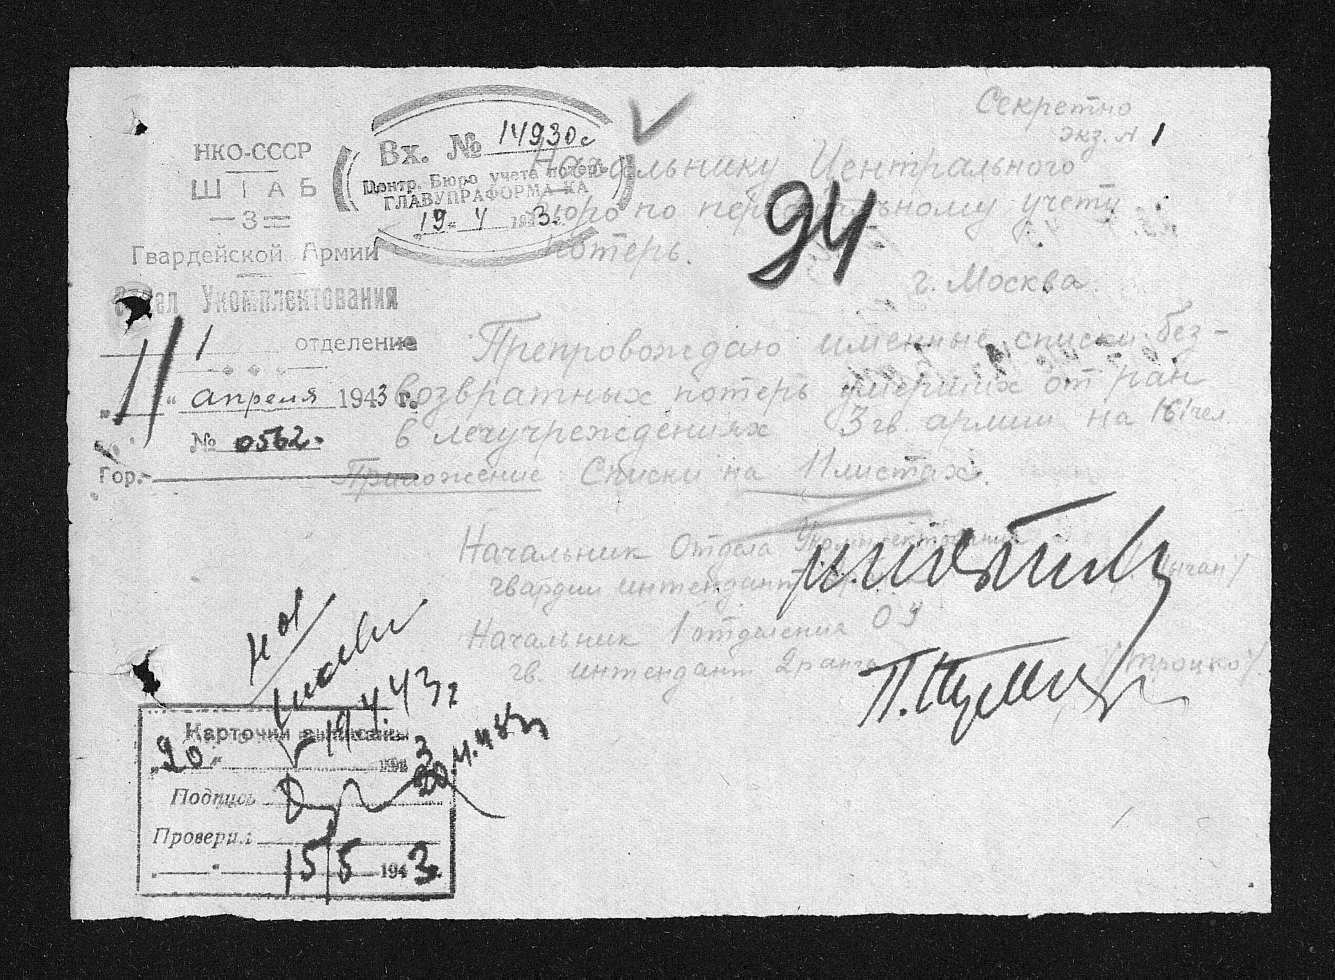 Секретно
экз. № 1
НКО-СССР
ШТАБ
—3—
Гвардейской Армии
Отдел Укомплектования
1 отделение
"11" апреля 1943 г.
№ 0562.
Гор.
Вх. № 14930с
Центр. Бюро учета потерь
ГЛАВУПРАФОРМА КА
"19" 4 1943 г.
94
Начальнику Центрального
бюро по персональному учету
потерь.
г. Москва.
Препровождаю именные списки без-
возвратных потерь умерших от ран
в лечучреждениях 3 гв. армии на 161 чел.
Приложение Списки на 11 листах.
Начальник Отдела Укомплектования
гвардии интендант
Начальник 1 отделения ОУ
гв. интендант 2 ранга /Троцко/
19.4.43 г
Карточки
"20" 1943
20.4.43 г
Подпись
Проверил
15/5 1943 г.